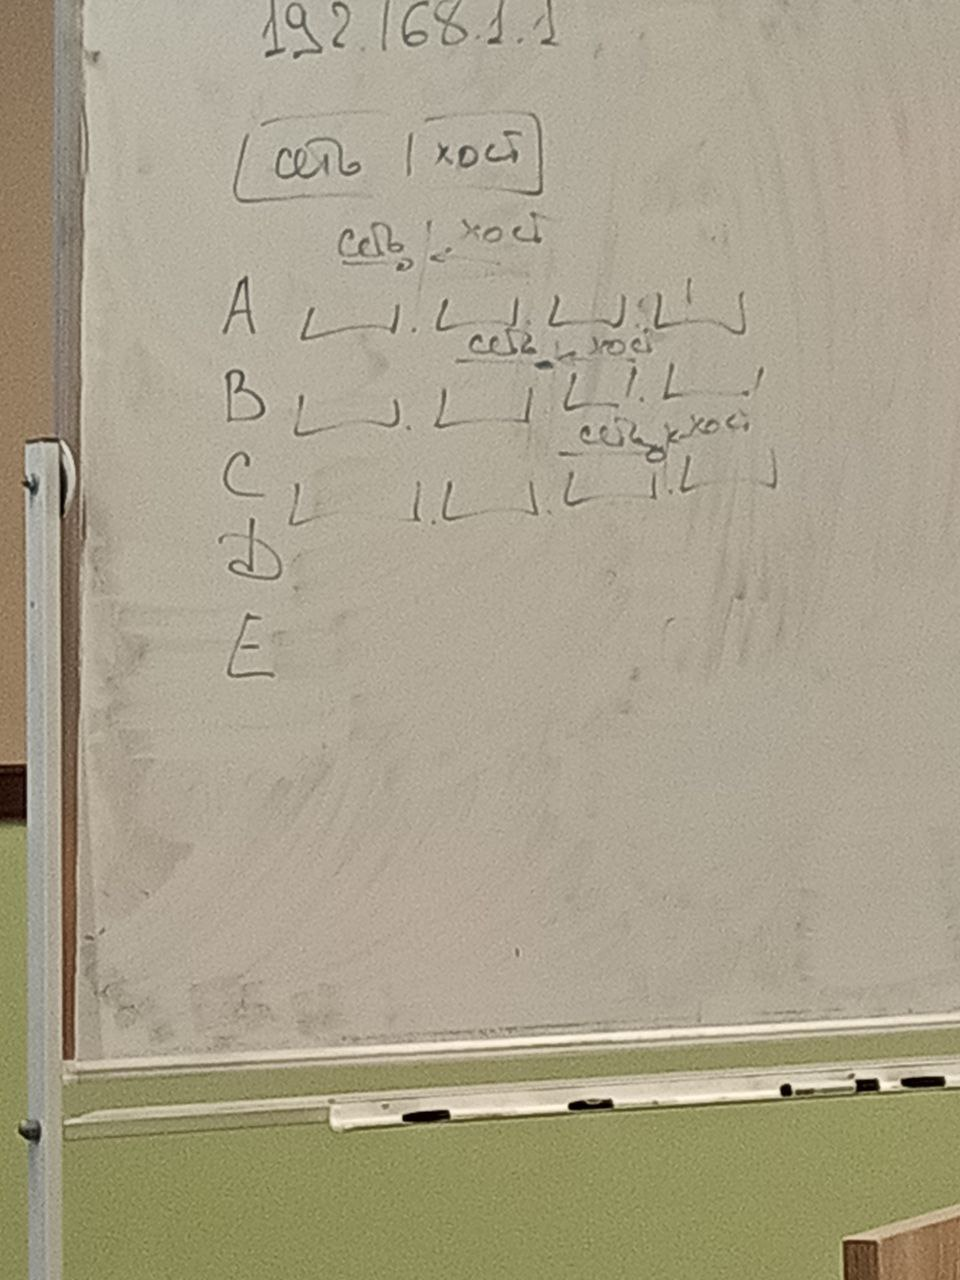 192.168.1.1
сеть | хост
сеть | хост
A
сеть хост
B
сеть хост
C
D
E